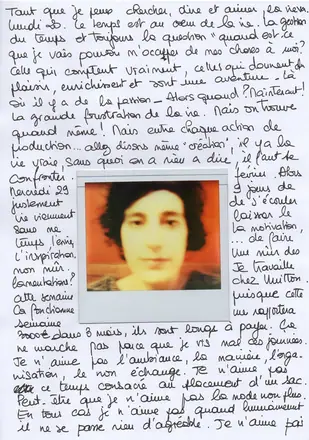 Tant que je peux chercher, dire et aimer, la vie va.
Lundi 20. Le temps est au cœur de la vie. La gestion
du temps et toujours la question "quand est-ce
que je vais pouvoir m'occuper de mes choses à moi?
Celles qui comptent vraiment, celles qui donnent du
plaisir, enrichissent et sont une aventure - Là
où il y a de la passion - Alors quand? Maintenant!
La grande frustration de la vie. Mais on trouve
quand même! Mais entre chaque action de
production... allez disons même "création", il y a la
vie vraie, sans quoi on a rien à dire, il faut se
confronter. février. Alors
Mercredi 29 jours de
justement de s'écouler
viennent laisser le
sans me la motivation,
temps l'envie, ... de faire
l'inspiration, nuis des
non mûr. Je travaille
Lamentations? chez Vuitton
cette semaine puisque cette
La fonctionne me rapportera
semaine
dans 3 mois, ils sont longs à payer. Ça
ne marche pas parce que je vis mal ces journées.
Je n'aime pas l'ambiance, la manière, l'orga-
nisation, le non échange. Je n'aime pas
ce temps consacré au placement d'un sac.
Peut-être que je n'aime pas la mode non plus.
En tous cas je n'aime pas quand humainement
il ne se passe rien d'agréable. Je n'aime pas